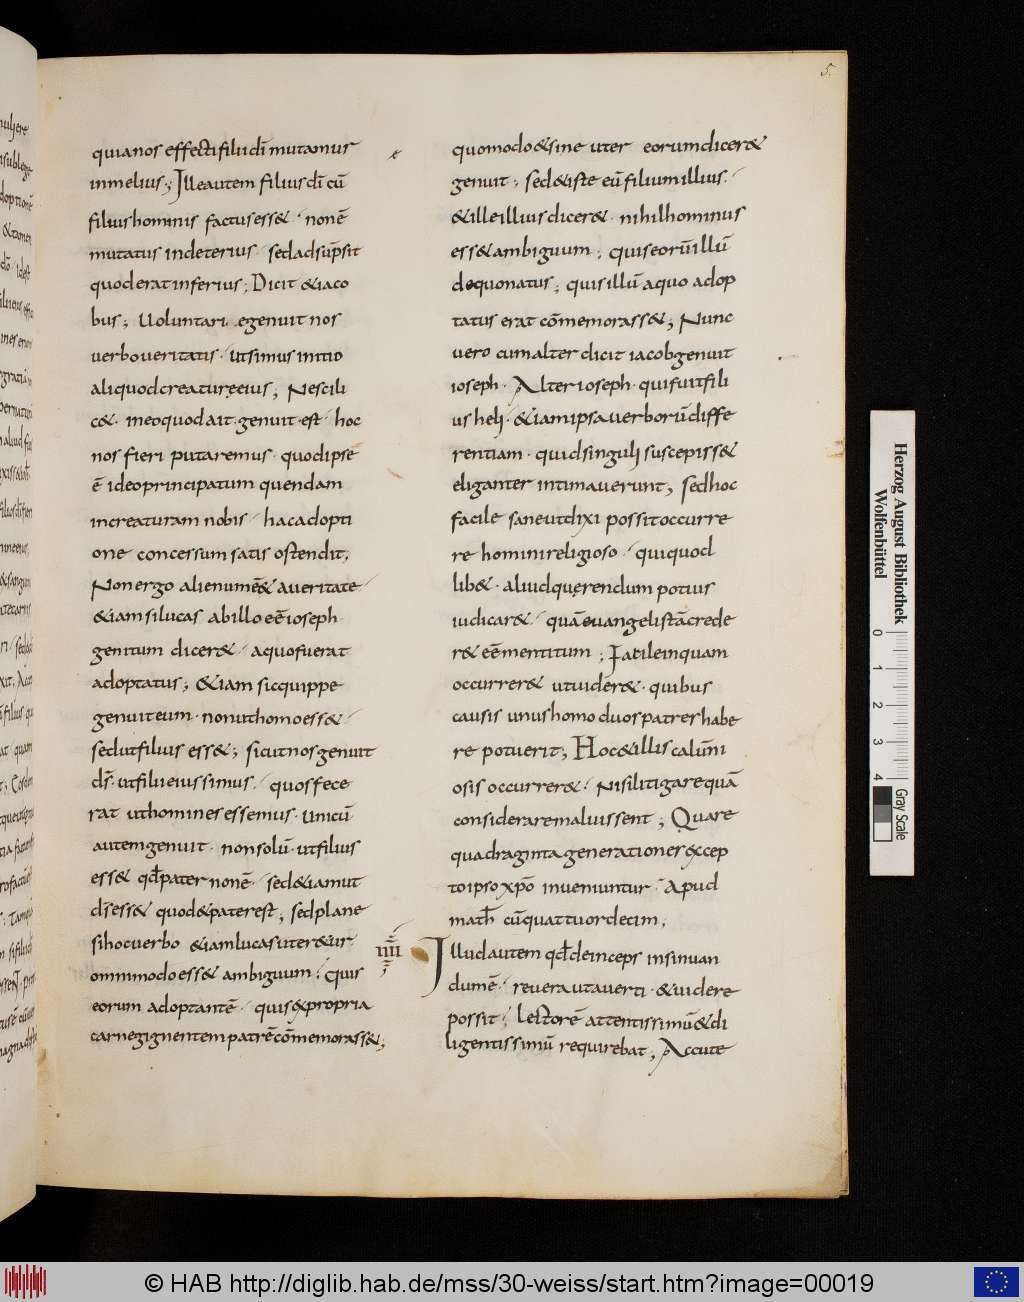 5.
quia nos effecti filii dī mutamur
in melius; Ille autem filius dī cū
filius hominis factus ess& · nonē
mutatus in deterius · sed adsūpsit
quod erat inferius; Dicit &iaco
bus; Uoluntariȩ genuit nos
uerbo ueritatis · ut simus initiū
aliquod creaturȩ eius; Ne scili
c& · in eo quod ait · genuit · est · hoc
nos fieri putaremus · quod ipse
ē ideo principatum quendam
in creaturam nobis · hac adopti
one concessum satis ostendit;
Non ergo alienum ēē & a ueritate
&iam si lucas ab illo eē ioseph
genitum dicer& · a quo fuerat
adoptatus; &iam sic quippe
genuit eum · non ut homo ess& ·
sed ut filius ess&; sicut nos genuit
dī · ut filii eius simus · quos fece
rat ut homines essemus · Unicū
autem genuit · non solū · ut filius
ess& qđ pater nonē · sed &iam ut
dī ess& quod & pater est; sed plane
si hoc uerbo &iam lucas uter&ur
omnimodo ess& ambiguum · quis
eorum adoptantē · quis & propria
carne gignentem patrē cōmemorass&;
quomodo & sine uter eorum dicer&
genuit; sed & iste eū filium illius ·
& ille illius dicer& · nihilhominus
ess& ambiguum; quis eorū illū
de quo natus; quis illū a quo adop
tatus erat cōmemorass&; Nunc
uero cum alter dicit iacob genuit
ioseph · Alter ioseph · qui fuit fili
us heli · &iam ipsa uerborū diffe
rentiam · quid singuli suscepiss&
eliganter intimauerunt, sed hoc
facile sane ut dixi possit occurre
re homini religioso · qui quod
lib& · aliud quȩrendum potius
iudicar& · quā euangelistā crede
r& eē mentitum; Facile inquam
occurrer& ut uider& · quibus
causis unus homo duos patres habe
re potuerit; Hoc & illis calūni
osis occurrer& · Nisi litigare quā
considerare maluissent; Quare
quadraginta generationes excep
to ipso xp̄o inueniuntur · Apud
math̄ cū quattuordecim;
IIII Illud autem qđ deinceps insinuan
dum ē · reuera ut auerti · & uidere
possit; lectorē attentissimū & di
ligentissimū requirebat; Accute
Herzog August Bibliothek
Wolfenbüttel
0 1 2 3 4
Gray Scale
© HAB http://diglib.hab.de/mss/30-weiss/start.htm?image=00019